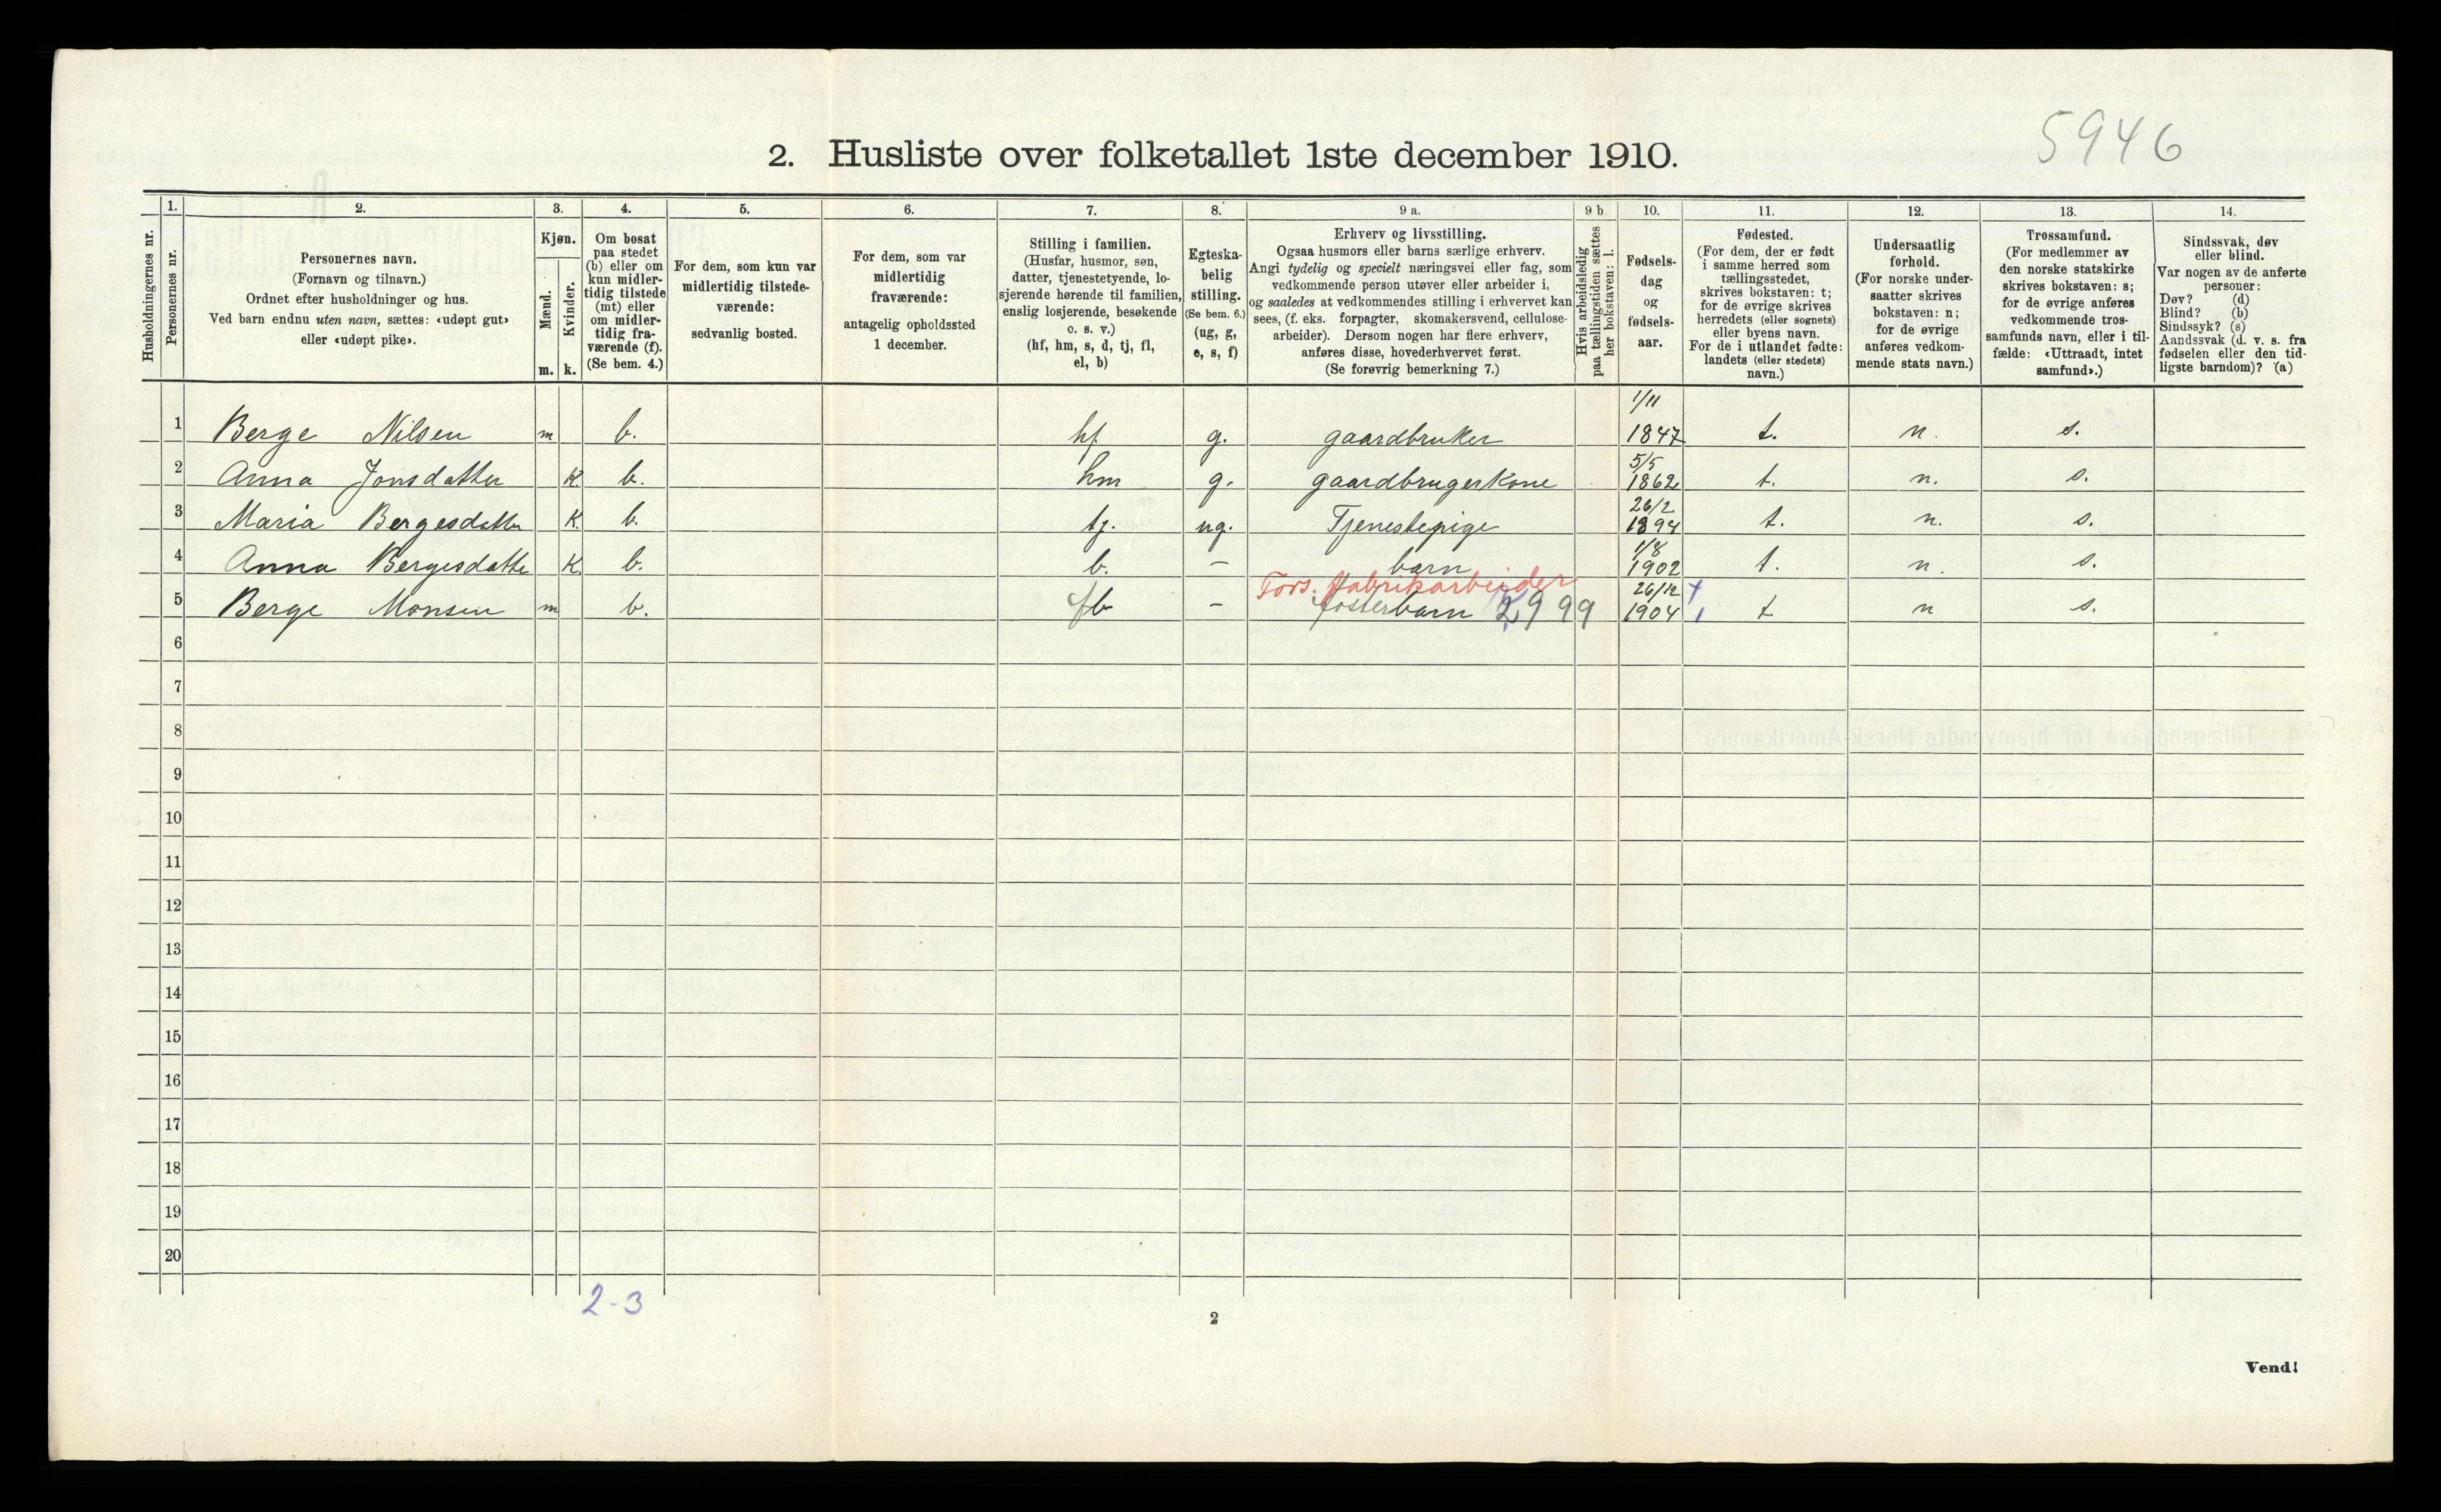 5946
2. Husliste over folketallet 1ste december 1910.
Husholdningernes nr.
1.
Personernes nr.
2.
Personernes navn.
(Fornavn og tilnavn.)
Ordnet efter husholdninger og hus.
Ved barn endnu uten navn, sættes: «udøpt gut»
eller «udøpt pike».
3.
Kjøn.
Mænd.
Kvinder.
m. k.
4.
Om bosat
paa stedet
(b) eller om
kun midler-
tidig tilstede
(mt) eller
om midler-
tidig fra-
værende (f).
(Se bem. 4.)
5.
For dem, som kun var
midlertidig tilstede-
værende:
sedvanlig bosted.
6.
For dem, som var
midlertidig
fraværende:
antagelig opholdssted
1 december.
7.
Stilling i familien.
(Husfar, husmor, søn,
datter, tjenestetyende, lo-
sjerende hørende til familien,
enslig losjerende, besøkende
o. s. v.)
(hf, hm, s, d, tj, fl,
el, b)
8.
Egteska-
belig
stilling.
(Se bem. 6.)
(ug, g,
e, s, f)
9 a.
Erhverv og livsstilling.
Ogsaa husmors eller barns særlige erhverv.
Angi tydelig og specielt næringsvei eller fag, som
vedkommende person utøver eller arbeider i,
og saaledes at vedkommendes stilling i erhvervet kan
sees, (f. eks. forpagter, skomakersvend, cellulose-
arbeider). Dersom nogen har flere erhverv,
anføres disse, hovederhvervet først.
(Se forøvrig bemerkning 7.)
9 b.
Hvis arbeidsledig
paa tællingstiden sættes
her bokstaven: l.
10.
Fødsels-
dag
og
fødsels-
aar.
11.
Fødested.
(For dem, der er født
i samme herred som
tællingsstedet,
skrives bokstaven: t;
for de øvrige skrives
herredets (eller sognets)
eller byens navn.
For de i utlandet fødte:
landets (eller stedets)
navn.)
12.
Undersaatlig
forhold.
(For norske under-
saatter skrives
bokstaven: n;
for de øvrige
anføres vedkom-
mende stats navn.)
13.
Trossamfund.
(For medlemmer av
den norske statskirke
skrives bokstaven: s;
for de øvrige anføres
vedkommende tros-
samfunds navn, eller i til-
fælde: «Uttraadt, intet
samfund».)
14.
Sindssvak, døv
eller blind.
Var nogen av de anførte
personer:
Døv? (d)
Blind? (b)
Sindssyk? (s)
Aandssvak (d. v. s. fra
fødselen eller den tid-
ligste barndom)? (a)
1/11
1 Berge Nilsen m b. hf g. gaardbruker 1847 t. n. s.
5/5
2 Anna Jonsdatter K. b. hm g. gaardbrugerskone 1862 t. n. s.
26/2
3 Maria Bergesdatter K. b. tj. ug. Tjenestepige 1894 t. n. s.
1/8
4 Anna Bergesdatter K. b. b. - barn 1902 t. n. s.
Fors. fabrikarbeider 26/12
5 Berge Monsen m b. fb - fosterbarn 2999 1904 t n s.
6
7
8
9
10
11
12
13
14
15
16
17
18
19
20
2-3
2
Vend!